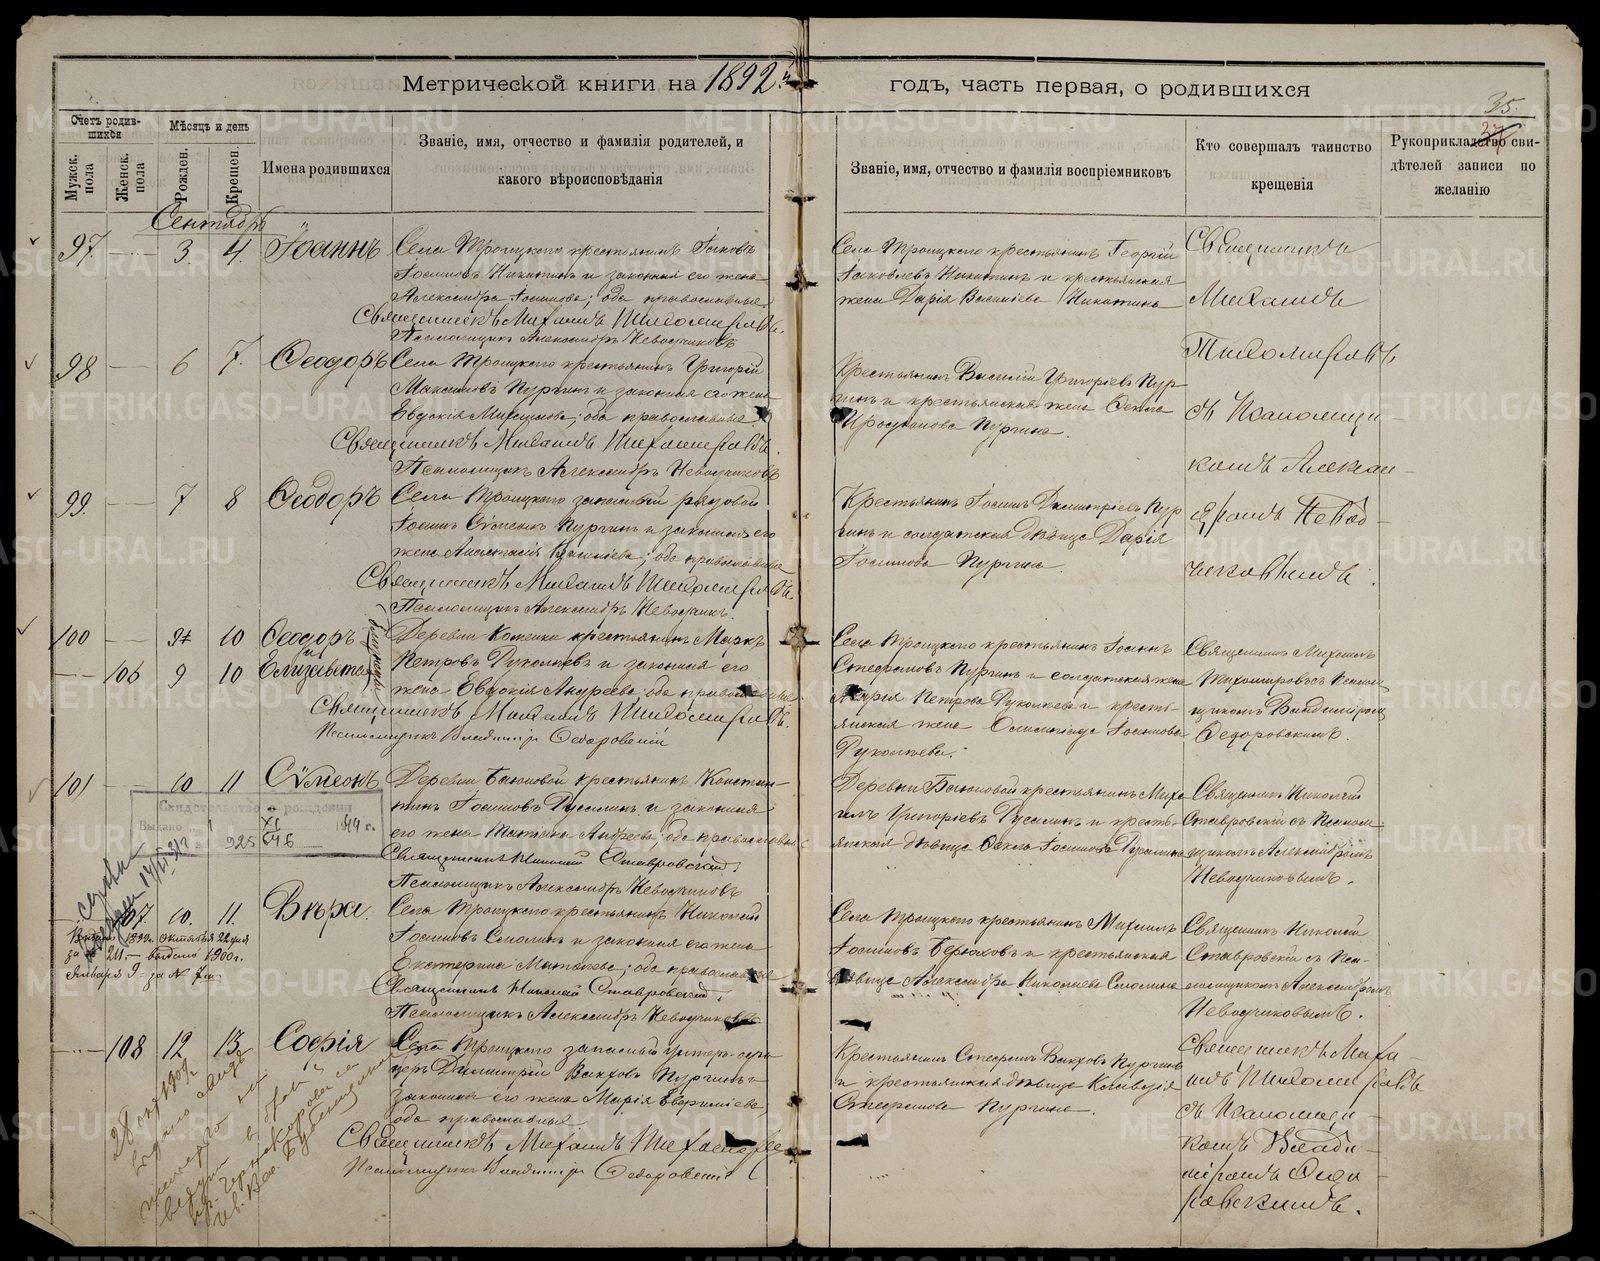 Метрической книги на 1892й годъ, часть первая, о родившихся
35.
Счетъ родившихся
Мужск. пола
Женск. пола
Мѣсяцъ и день
Рожден.
Крещен.
Имена родившихся
Званіе, имя, отчество и фамилія родителей, и
какого вѣроисповѣданія
Званіе, имя, отчество и фамилія воспріемниковъ
Кто совершалъ таинство
крещенія
Рукоприкладство сви-
дѣтелей записи по
желанію
Сентябрь
97. 3 4. Іоаннъ
Села Троицкаго крестьянинъ Іаковъ
Іосифовъ Никитинъ и законная его жена
Александра Іосифова; оба православные.
Священникъ Михаилъ Тихомировъ.
Псаломщикъ Александръ Неводчиковъ
Села Троицкаго крестьянинъ Георгій
Іаковлевъ Никитинъ и крестьянская
жена Дарія Василіева Никитина
Священникъ
Михаилъ
Тихомировъ
съ Псаломщи-
комъ Алексан-
дромъ Невод-
чиковымъ.
98 6 7. Ѳеодоръ
Села Троицкаго крестьянинъ Григорій
Максимовъ Пургинъ и законная его жена
Евдокія ; оба православные.
Священникъ Михаилъ Тихомировъ.
Псаломщикъ Александръ Неводчиковъ
Крестьянинъ Василій Григоріевъ Пур-
гинъ и крестьянская жена Ѳекла
Пургина.
99. 7 8 Ѳеодоръ
Села Троицкаго запасный рядовой
Іосифъ Пургинъ и законная его
жена Анастасія Василіева; оба православные
Священникъ Михаилъ Тихомировъ.
Псаломщикъ Александръ Неводчик.
Крестьянинъ Іосифъ Димитріевъ Пур-
гинъ и солдатская дѣвица Дарія
Іосифова Пургина.
100 9 10 Ѳеодоръ
106 9 10 Елизавета
и
близнецы
Деревни Каменки крестьянинъ Маркъ
Петровъ и законная его
жена Евдокія Андреева; оба православные.
Священникъ Михаилъ Тихомировъ.
Псаломщикъ Владиміръ Ѳедоровскій
Села Троицкаго крестьянинъ Іоаннъ
Стефановъ Пургинъ и солдатская жена
Марія Петрова и кресть-
янская жена Іосифова
Священникъ Михаилъ
Тихомировъ съ Псалом-
щикомъ Владиміромъ
Ѳедоровскимъ.
101 10 11 Сѵмеонъ
Деревни Баюновой крестьянинъ Констан-
тинъ Іосифовъ Русалинъ и законная
его жена Татіана Андреева; оба православные
Священникъ Николай Ставровскій.
Псаломщикъ Александръ Неводчиковъ
Деревни Баюновой крестьянинъ Миха-
илъ Григоріевъ Русалинъ и кресть-
янская дѣвица Ѳекла Іосифова Русалина
Священникъ Николай
Ставровскій съ Псалом-
щикомъ Александромъ
Неводчиковымъ.
Свидетельство о рождении
Выдано 1944 г.
107. 10. 11. Вѣра.
Села Троицкаго крестьянинъ Николай
Іосифовъ Смолинъ и законная его жена
Екатерина Матвѣева; оба православные
Священникъ Николай Ставровскій.
Псаломщикъ Александръ Неводчиковъ
Села Троицкаго крестьянинъ Михаилъ
Іосифовъ и крестьянская
дѣвица Александра Николаева Смолина
Священникъ Николай
Ставровскій съ Пса-
ломщикомъ Александромъ
Неводчиковымъ.
1899г. октября 22 дня
за № 211. — выдано 1900г.
Января 9 за № 7
108 12 13. Софія
Села Троицкаго запасный унтеръ-офи-
церъ Димитрій Вакховъ Пургинъ и
законная его жена Марія ,
оба православные
Священникъ Михаилъ
Псаломщикъ Владиміръ Ѳедоровскій
Крестьянинъ Стефанъ Вакховъ Пургинъ
и крестьянская дѣвица Клавдія
Стефанова Пургина.
Священникъ Миха-
илъ Тихомировъ
съ Псаломщи-
комъ Влади-
міромъ Ѳедо-
ровскимъ.
METRIKI.GASO-URAL.RU